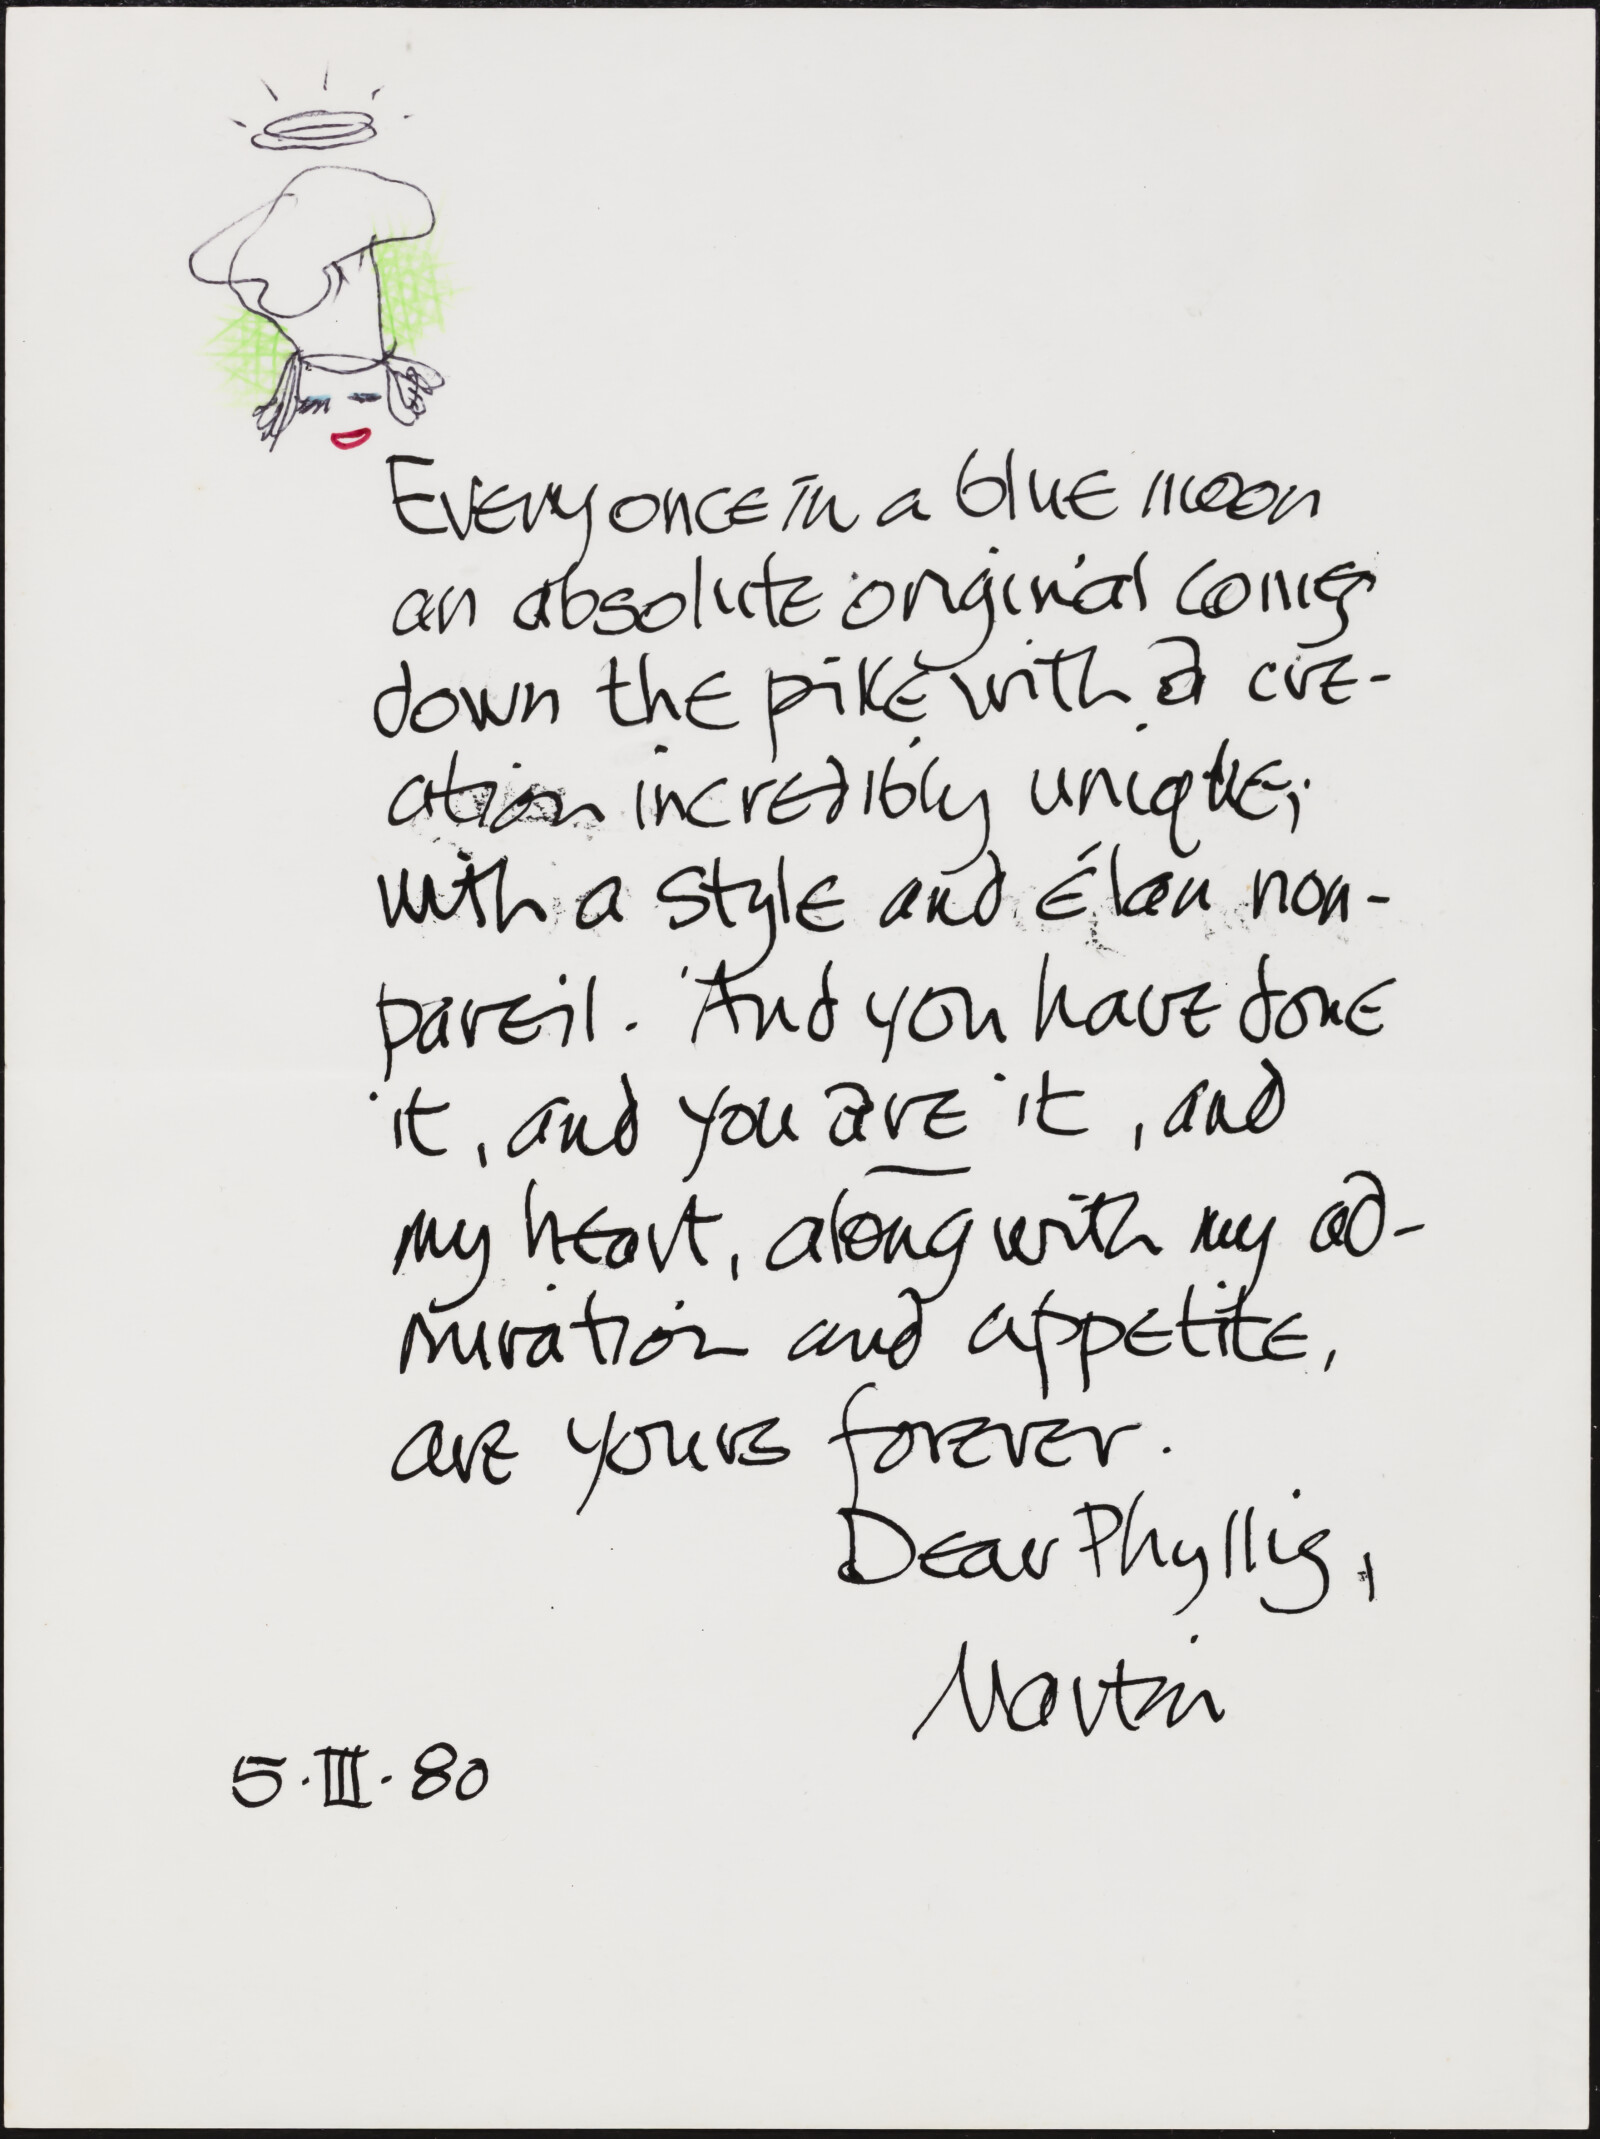 Every once in a blue moon
an absolute original comes
down the pike with a cre-
ation incredibly unique;
with a style and élan non-
pareil. And you have done
it, and you are it, and
my heart, along with my ad-
miration and appetite,
are yours forever.
Dear Phyllis,
Martin
5·III·80